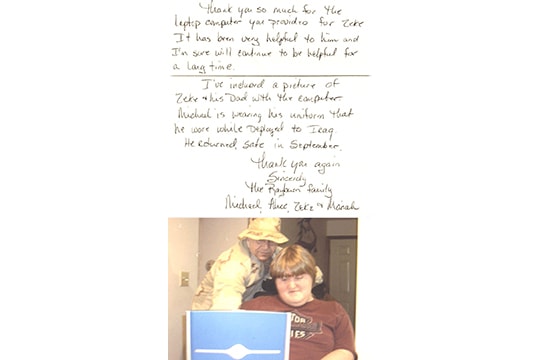 Thank you so much for the
laptop computer you provided for Zeke
It has been very helpful to him and
I'm sure will continue to be helpful for
a long time.
I've inclosed a picture of
Zeke & his Dad with the computer.
Michael is wearing his uniform that
he wore while Deployed to Iraq.
He returned safe in September.
Thank you again
Sincerly
The Rayburn family
Michael, Zeke & Mariah